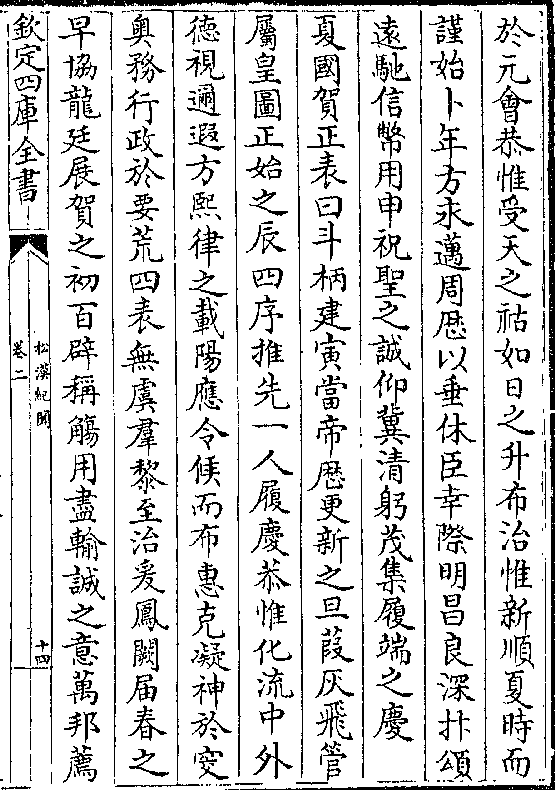 於元會恭惟受天之祜如日之升布治惟新順夏時而
謹始卜年方永邁周厯以垂休臣幸際明昌良深抃頌
遠馳信幣用申祝聖之誠仰冀清躬茂集履端之慶
夏國賀正表曰斗柄建寅當帝厯更新之旦葭灰飛管
屬皇圖正始之辰四序推先一人履慶恭惟化流中外
德視邇遐方熙律之載陽應令候而布惠克凝神於穾
奥務行政於要荒四表無虞羣黎至治爰鳳闕届春之
早協龍廷展賀之初百辟稱觴用盡輸誠之意萬邦薦
欽定四庫全書
松漠紀聞
卷二
十四